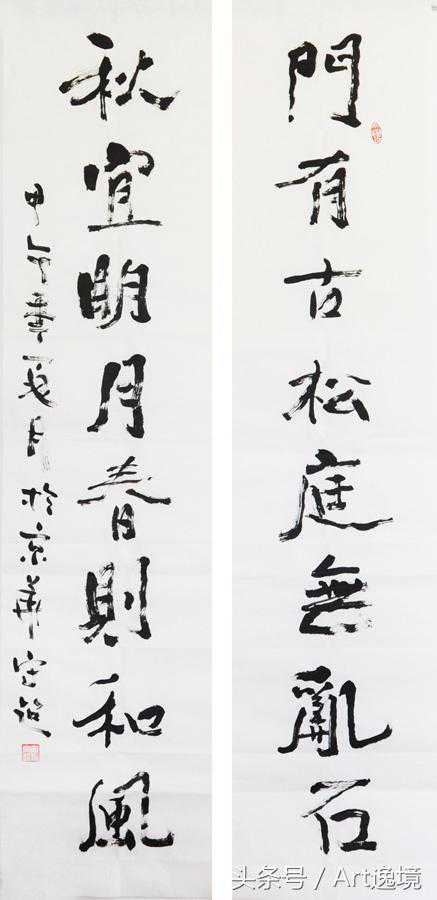 門有古松庭無亂石
秋宜明月春則和風
甲午夏月於京華
头条号 / Art逸境